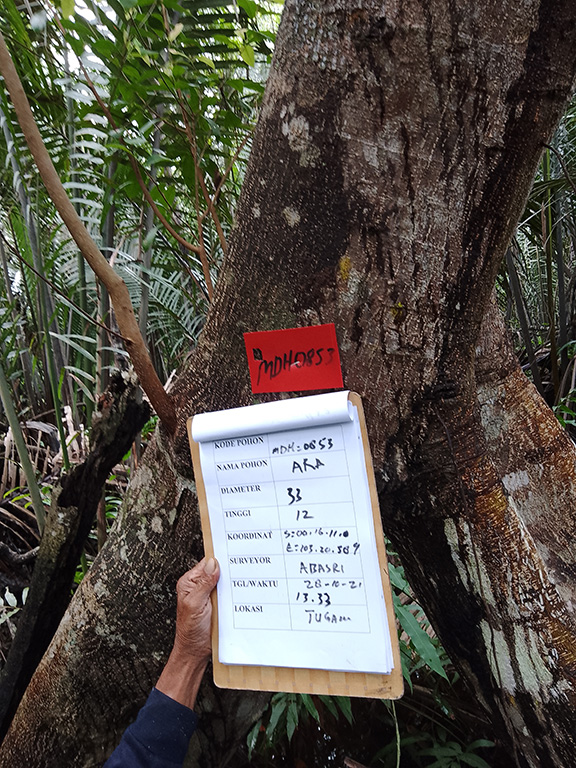 MDH0853
KODE POHON MDH=0853
NAMA POHON ARA
DIAMETER 33
TINGGI 12
KOORDINAT S:00.16.11.0
E:103.20.389
SURVEYOR ABASRI
TGL/WAKTU 28-10-21
13.33
LOKASI TUGAM